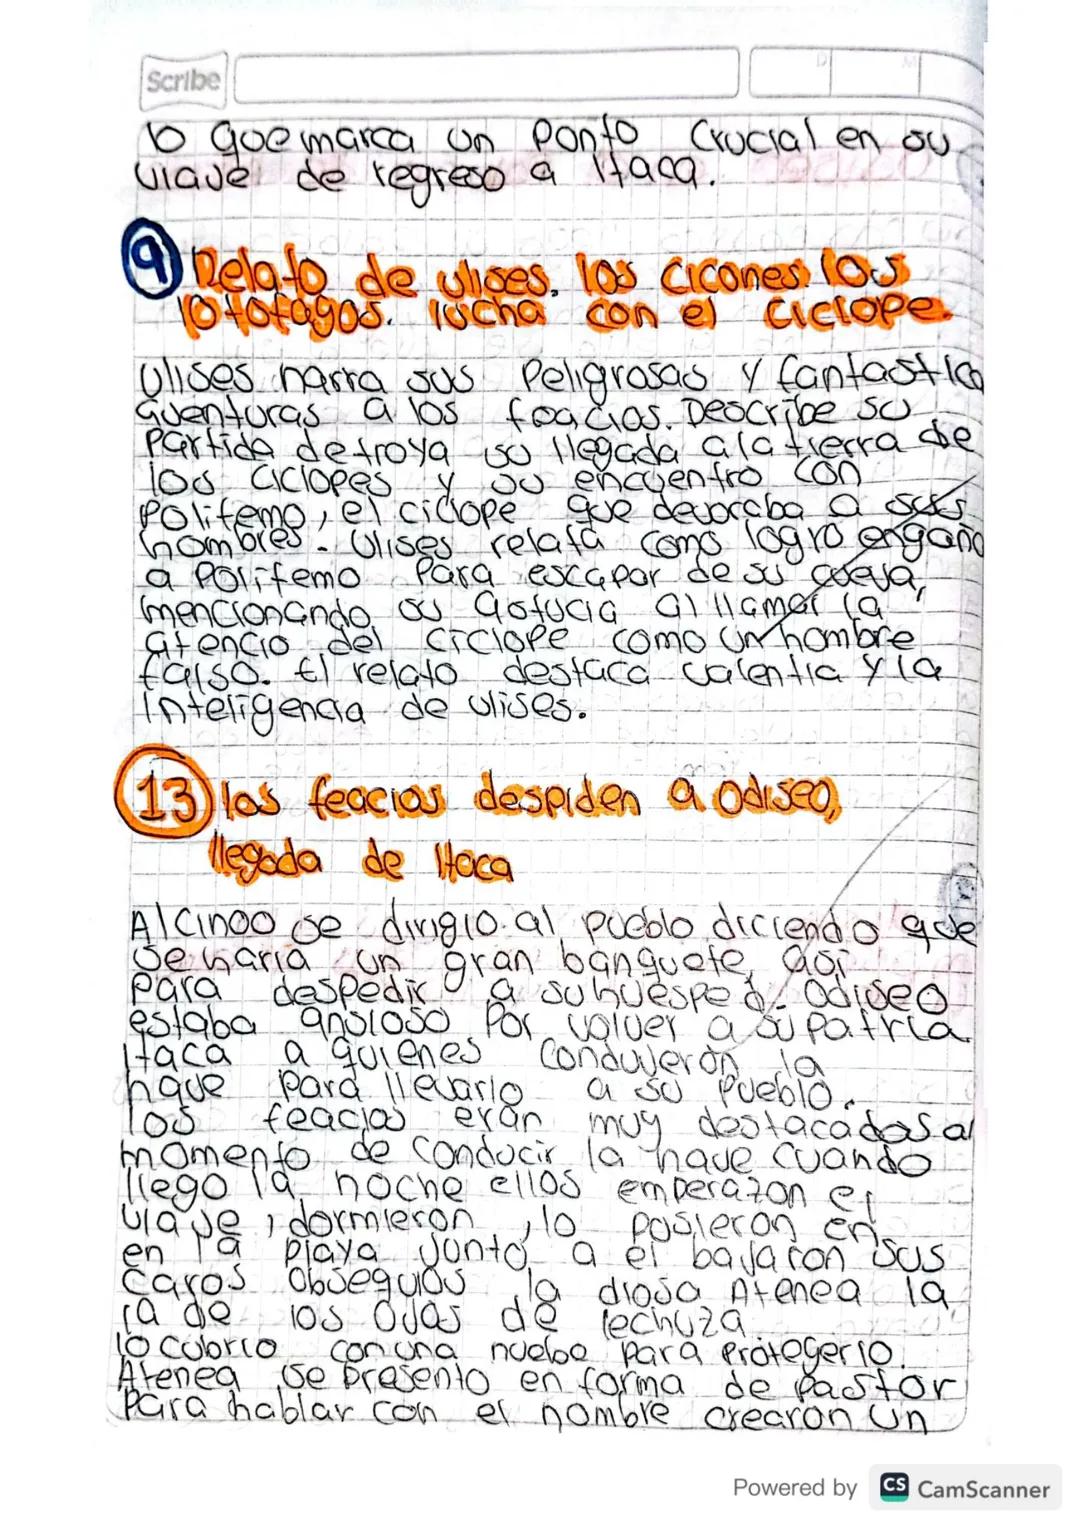 Scribe
D M
lo que marca un Ponto Crucial en su
viaje de regreso a Itaca.
9 Relato de ulises. los cicones los
lotofagos. lucha con el ciclope.
Ulises narra sus Peligrosas y fantastica
aventuras a los feacios. Describe su
Partida de troya su llegada a la tierra de
los ciclopes y su encuentro con
Polifemo, el ciclope que devoraba a sus
hombres. Ulises relata como logro engaño
a Polifemo Para escapar de su cueva,
mencionando su astucia al llamar la
atencio del ciclope como un hombre
falso. El relato destaca valentia y la
inteligencia de ulises.
13 los feacios despiden a Odiseo,
llegada de Itaca
Alcinoo se dirigio al pueblo diciendo que
se haria un gran banquete, asi
para despedir a su huesped. Odiseo
estaba ansioso Por volver a su patria
Itaca a quienes Condujeron la
nave para llevarlo a su Pueblo.
los feacios eran muy destacados al
momento de conducir la nave cuando
llego la noche ellos emperazon el
viaje, dormieron, lo pusieron en
en la playa junto a el bajaron sus
caros obsequios, la diosa Atenea la
la de los Ojos de lechuza
lo cubrio con una nuebe para protegerlo.
Atenea se presento en forma de pastor
para hablar con el hombre crearon un
Powered by CS CamScanner